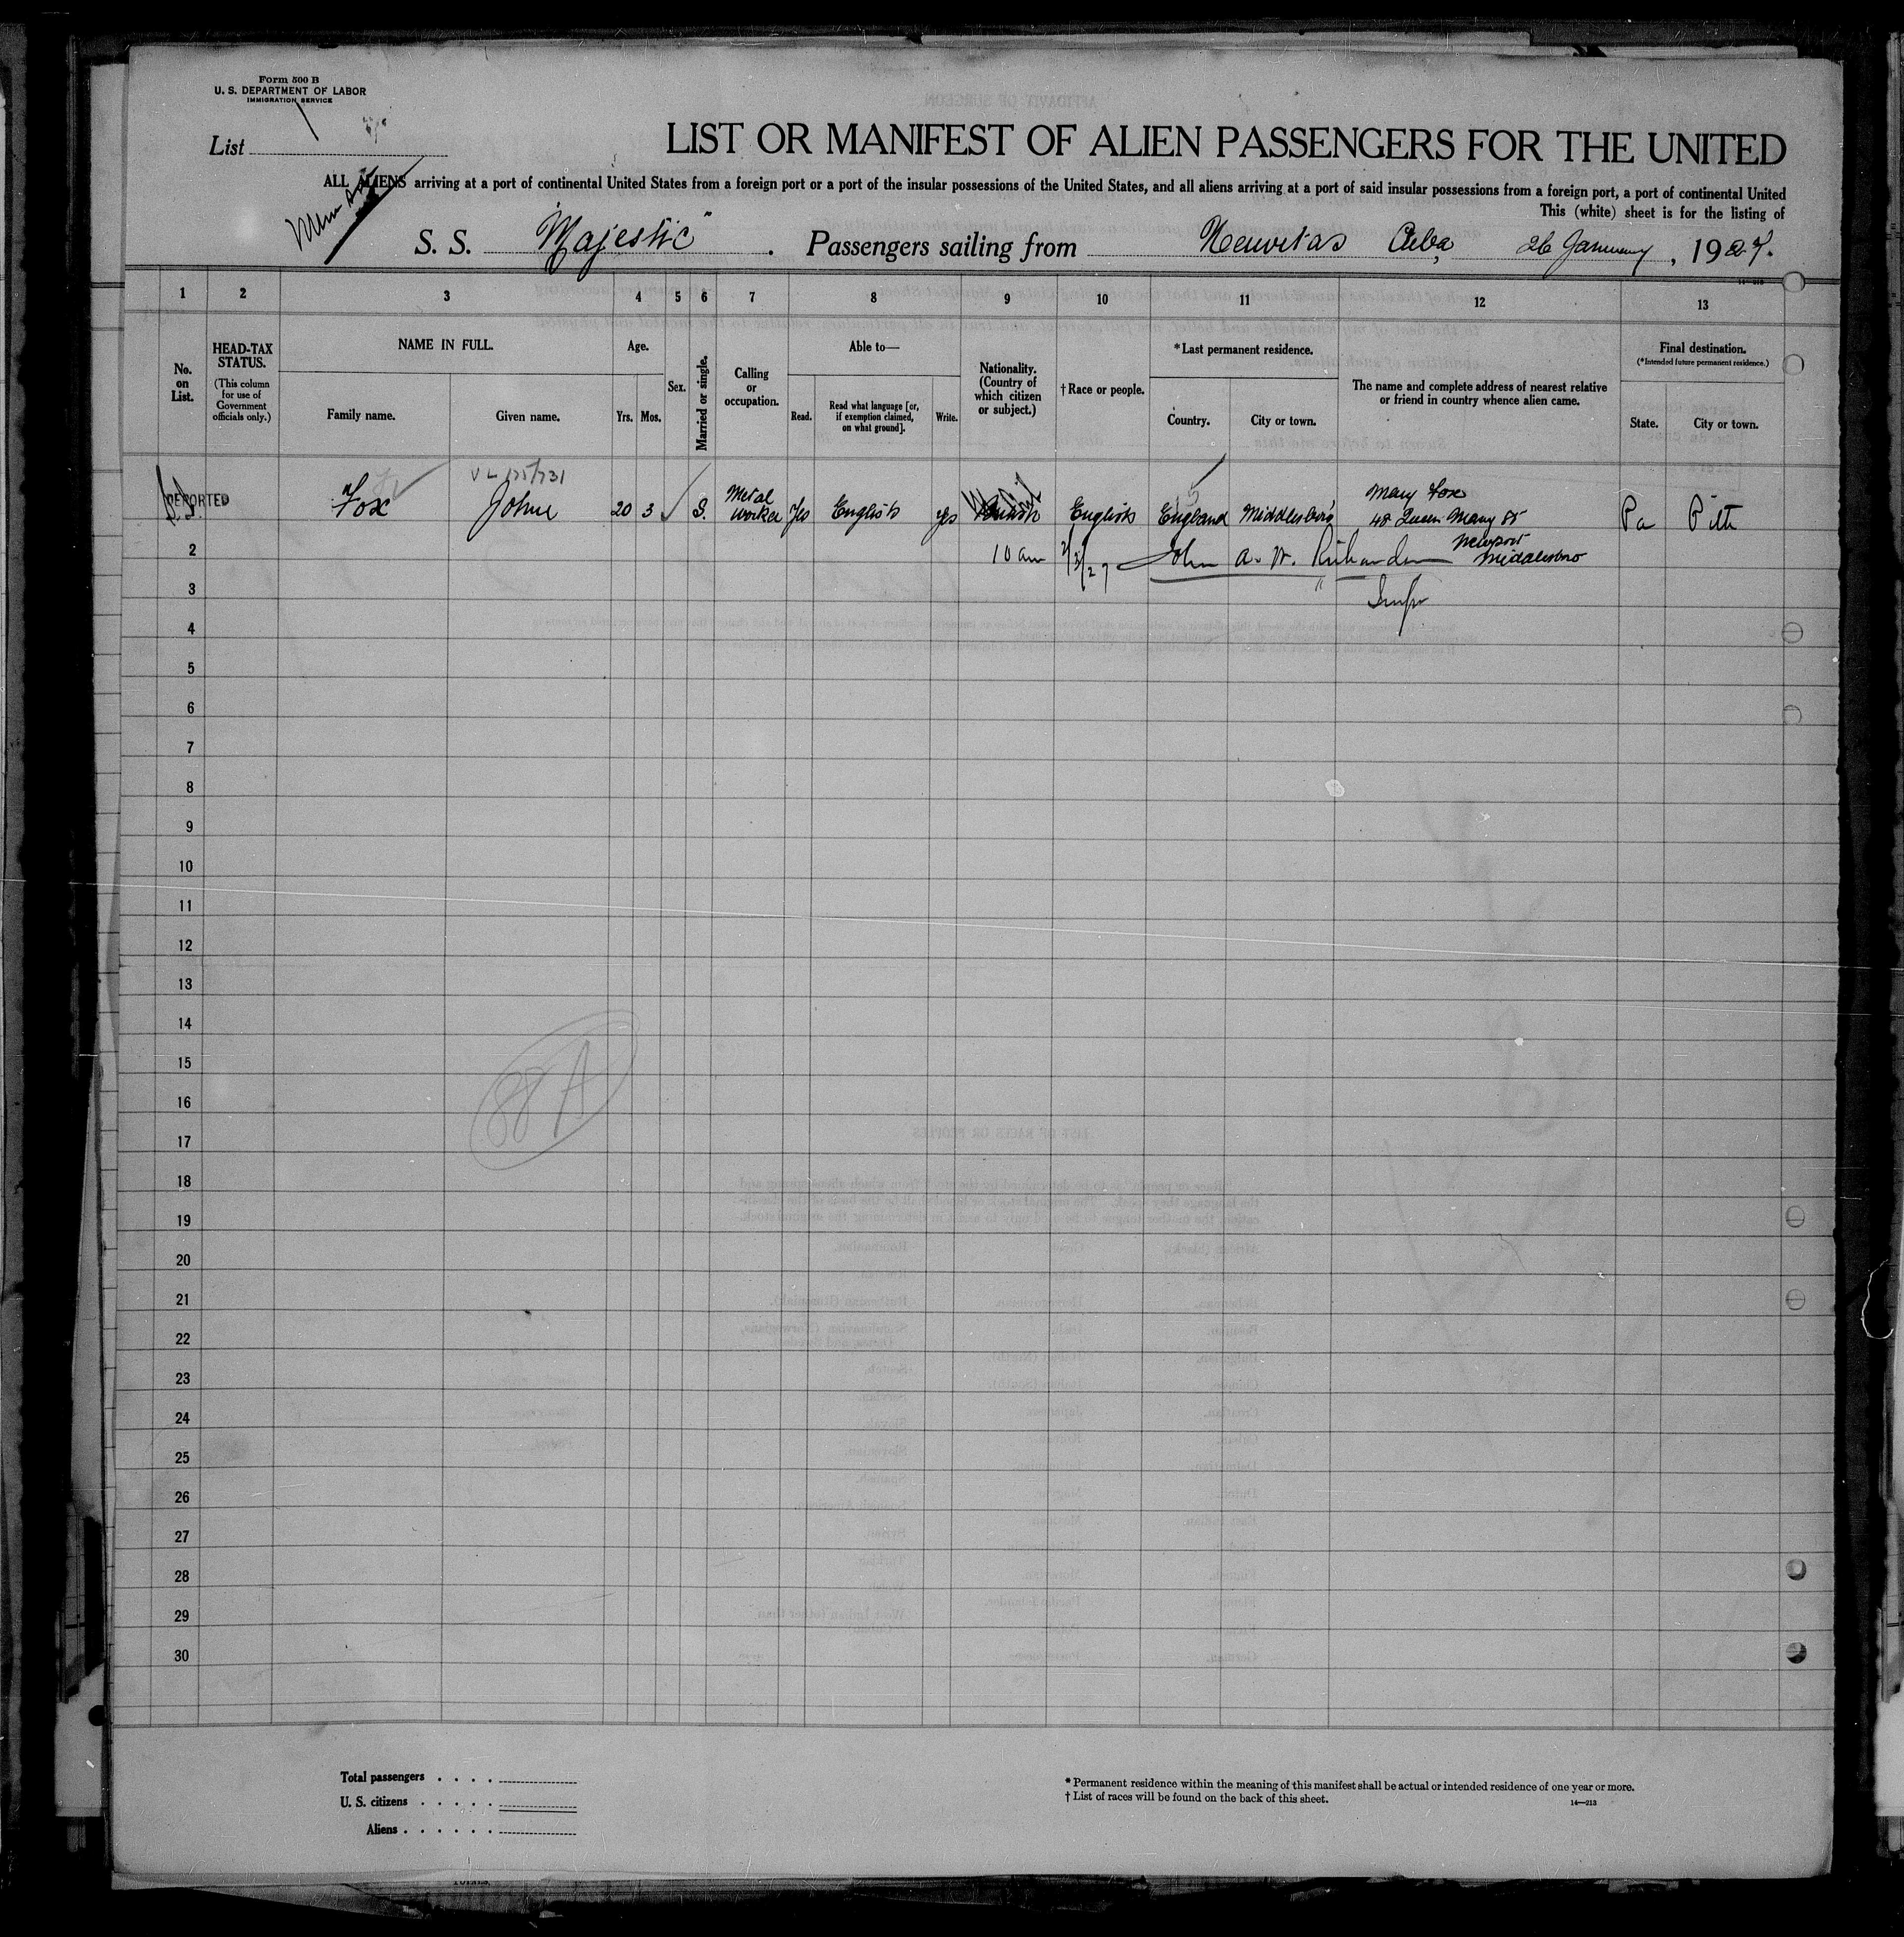 Form 500 B
U. S. DEPARTMENT OF LABOR
IMMIGRATION SERVICE
List 1
LIST OR MANIFEST OF ALIEN PASSENGERS FOR THE UNITED
ALL ALIENS arriving at a port of continental United States from a foreign port or a port of the insular possessions of the United States, and all aliens arriving at a port of said insular possessions from a foreign port, a port of continental United
This (white) sheet is for the listing of
S. S. "Majestic". Passengers sailing from Neuvitas Cuba, 26 January, 1927.
14—213
1 2 3 4 5 6 7 8 9 10 11 12 13
No. on List.
HEAD-TAX STATUS.
(This column for use of Government officials only.)
NAME IN FULL.
Family name. Given name.
Age.
Yrs. Mos.
Sex.
Married or single.
Calling or occupation.
Able to—
Read. Read what language [or, if exemption claimed, on what ground]. Write.
Nationality. (Country of which citizen or subject.)
†Race or people.
*Last permanent residence.
Country. City or town.
The name and complete address of nearest relative or friend in country whence alien came.
Final destination.
(*Intended future permanent residence.)
State. City or town.
VL 125/731
DEPORTED Fox John 20 3 S. Metal worker Yes English yes British English England Middlesboro Mary Fox 48 Queen Mary St Newport Middlesboro Pa Pitt
2 10 am 2/3/27 John A. W.
3
4
5
6
7
8
9
10
11
12
13
14
15
88A
16
17
18
19
20
21
22
23
24
25
26
27
28
29
30
Total passengers
U. S. citizens
Aliens
* Permanent residence within the meaning of this manifest shall be actual or intended residence of one year or more.
† List of races will be found on the back of this sheet.
14—213